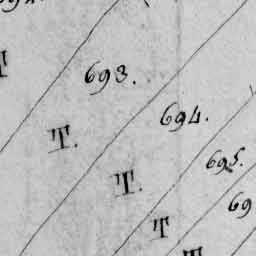 693.
694.
T.
695.
T.
69
T